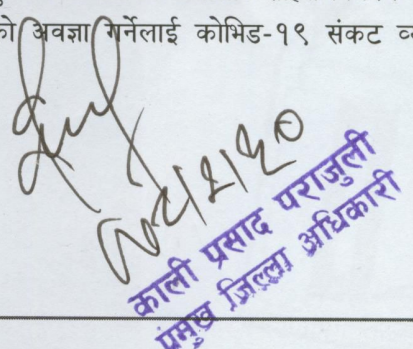 को अवज्ञा गर्नेलाई कोभिड-१९ संकट
काली प्रसाद पराजुली
प्रमुख जिल्ला अधिकारी